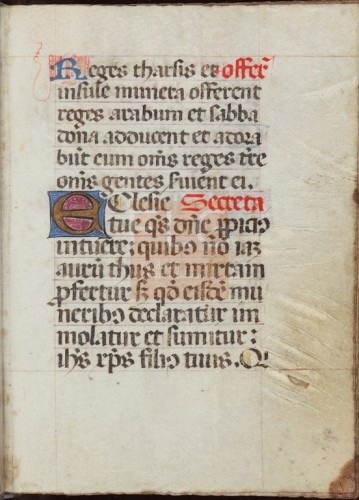 Reges tharsis et offer̄
insule munera offerent
reges arabum et sabba
dona adducent et adora
būt eum om̄s reges tr̄e
om̄s gentes ſuient ei.
Ecleſie Secreta
tue qs dn̄e ꝓpicio
intuere; quibo nō iaz
aurū thus et mirram
ꝓfertur ſꝫ qd̄ eiſdē mu
neribo declaratur im
molatur et ſumitur:
ih̄s xp̄s filio tuus. Q